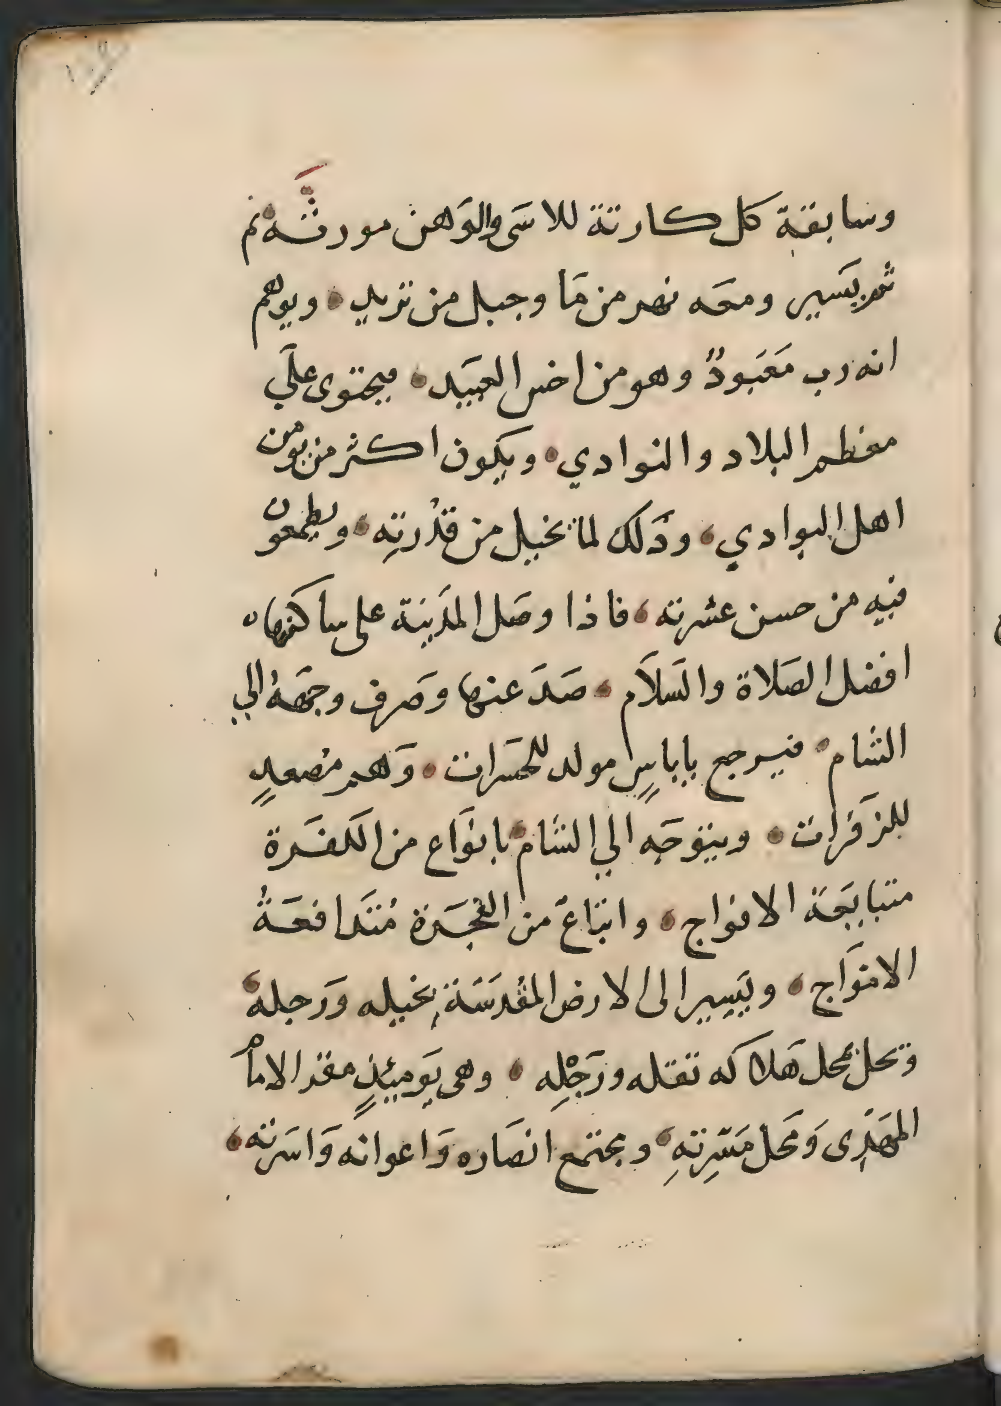 وسابقة كل كارثة للاسَى والوَهن مورثَّه ثم
ثمر يسَير ومعَه نهر من مَا وجبل من ثريد • ويوهم
انه رب مَعَبودٌ وهو من اخس العبَيد • فيحتوى علَي
معظم البلاد والنوادي • ويكون اكثر من يومن
اهل البوادي • وذَلك لما تخيل من قدْرته • ويطمعون
فيه من حسن عشرته • فاذا وصَل المدَينة على ساكنها
افضل الصَلاة والسَلاَم • صَدَ عنها وصَرف وجهَهُ الي
الشام • فيرجع باباسٍ مولد للحسَرات • وَهم مُصعدٍ
للزفَرات • ويتوجَه الي الشام • بانوَاع من الكفَرة
متبايعَة الافواج • واتباَع من الفجَرة مُتدَافعَةُ
الامَوَاج • ويَسِير الى الارض المقُدسَة بخيله ورَجله •
وتحل بمحل هَلاكه تقله ورَجْلِه • وهى يَوميئذٍ مقر الامامُ
المهَدِى وَمحَل مَسَرتهِ • ومجتمع انصَاره وَاعوانه وَاسَرته •